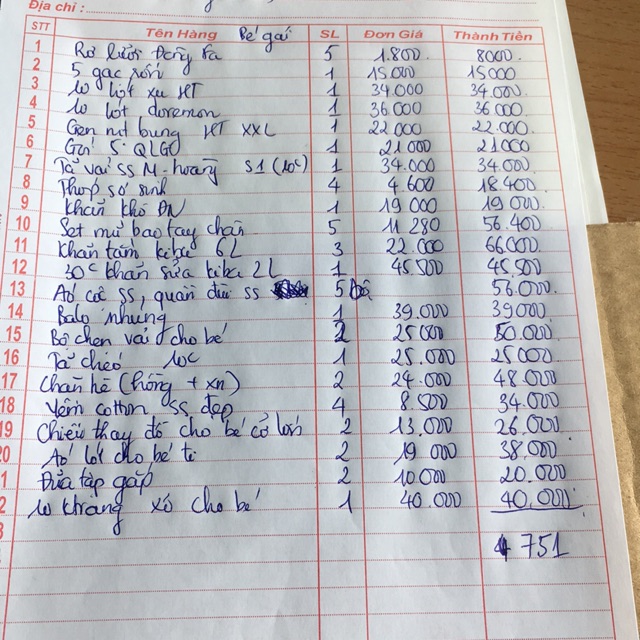 Địa chỉ:
STT Tên Hàng Bé gái SL Đơn Giá Thành Tiền
1 Rơ lưỡi Đông Fa 5 1.800 8000
2 5 gạc rốn 1 15.000 15000
3 10 lót xu HT 1 34.000 34.000
4 10 lót doremon 1 36.000 36.000
5 Gen nịt bụng HT XXL 1 22.000 22.000
6 Gối S. QLGO 1 21000 21000
7 Tã vải SS M-hoang S1 (10c) 1 34.000 34.000
8 Thóp sơ sinh 4 4.600 18.400
9 Khăn khô ĐN 1 19 000 19 000
10 Set mũ bao tay chân 5 11 280 56.400
11 Khăn tắm kiba 6L 3 22.000 66000
12 30c khăn sữa kiba 2L 1 45.500 45.500
13 Áo cộc SS, quần đùi SS 5 bộ 56.000
14 Balo nhung 1 39.000 39000
15 Bô chen vải cho bé 2 25000 50.000
16 Tã chéo 10c 1 25.000 25000
17 Chăn hè (hồng + xn) 2 24.000 48.000
18 Yếm cotton SS đẹp 4 8.500 34.000
19 Chiếu thay đồ cho bé cỡ lớn 2 13.000 26.000
20 Áo lót cho bé ti 2 19 000 38.000
1 Đũa tập gắp 2 10.000 20.000
2 10 khoang xô cho bé 1 40.000 40.000
3 751